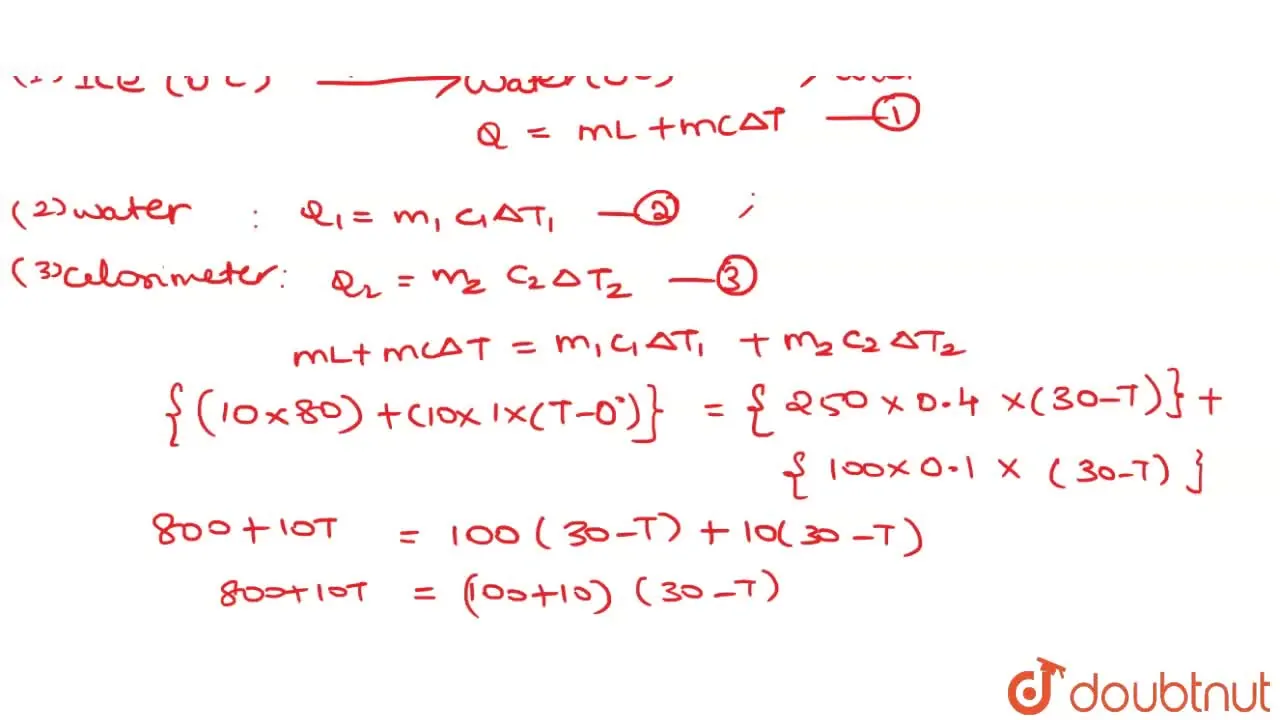 Q = mL + mCΔT —①
(2) water : Q₁ = m₁ C₁ ΔT₁ —② ;
(3) Calorimeter : Q₂ = m₂ C₂ ΔT₂ —③
mL + mCΔT = m₁C₁ΔT₁ + m₂C₂ΔT₂
{(10×80) + (10×1×(T-0°)} = {250×0.4×(30-T)} +
{100×0.1×(30-T)}
800+10T = 100(30-T) + 10(30-T)
800+10T = (100+10)(30-T)
doubtnut